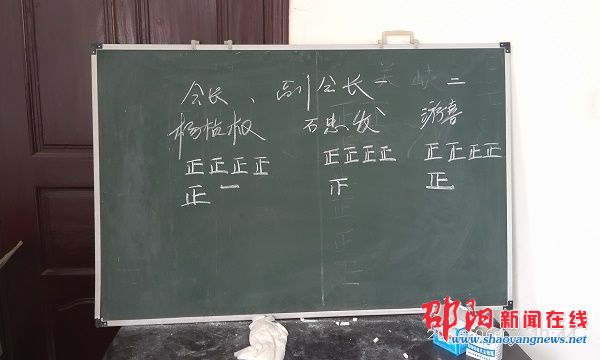 会长、副会长
杨 石忠发
正正正正 正正正正 正正正正
正一 正
邵阳新闻在线
www.shaoyangnews.net